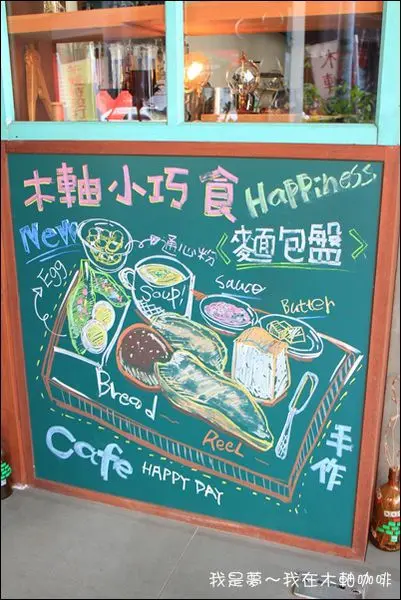 木軸小巧食
Happiness
New
通心粉
《麵包盤》
Egg
Soup!
Sauce
Butter
Bread
Reel
Cafe
HAPPY DAY
手作
木軸
我是夢~我在木軸咖啡